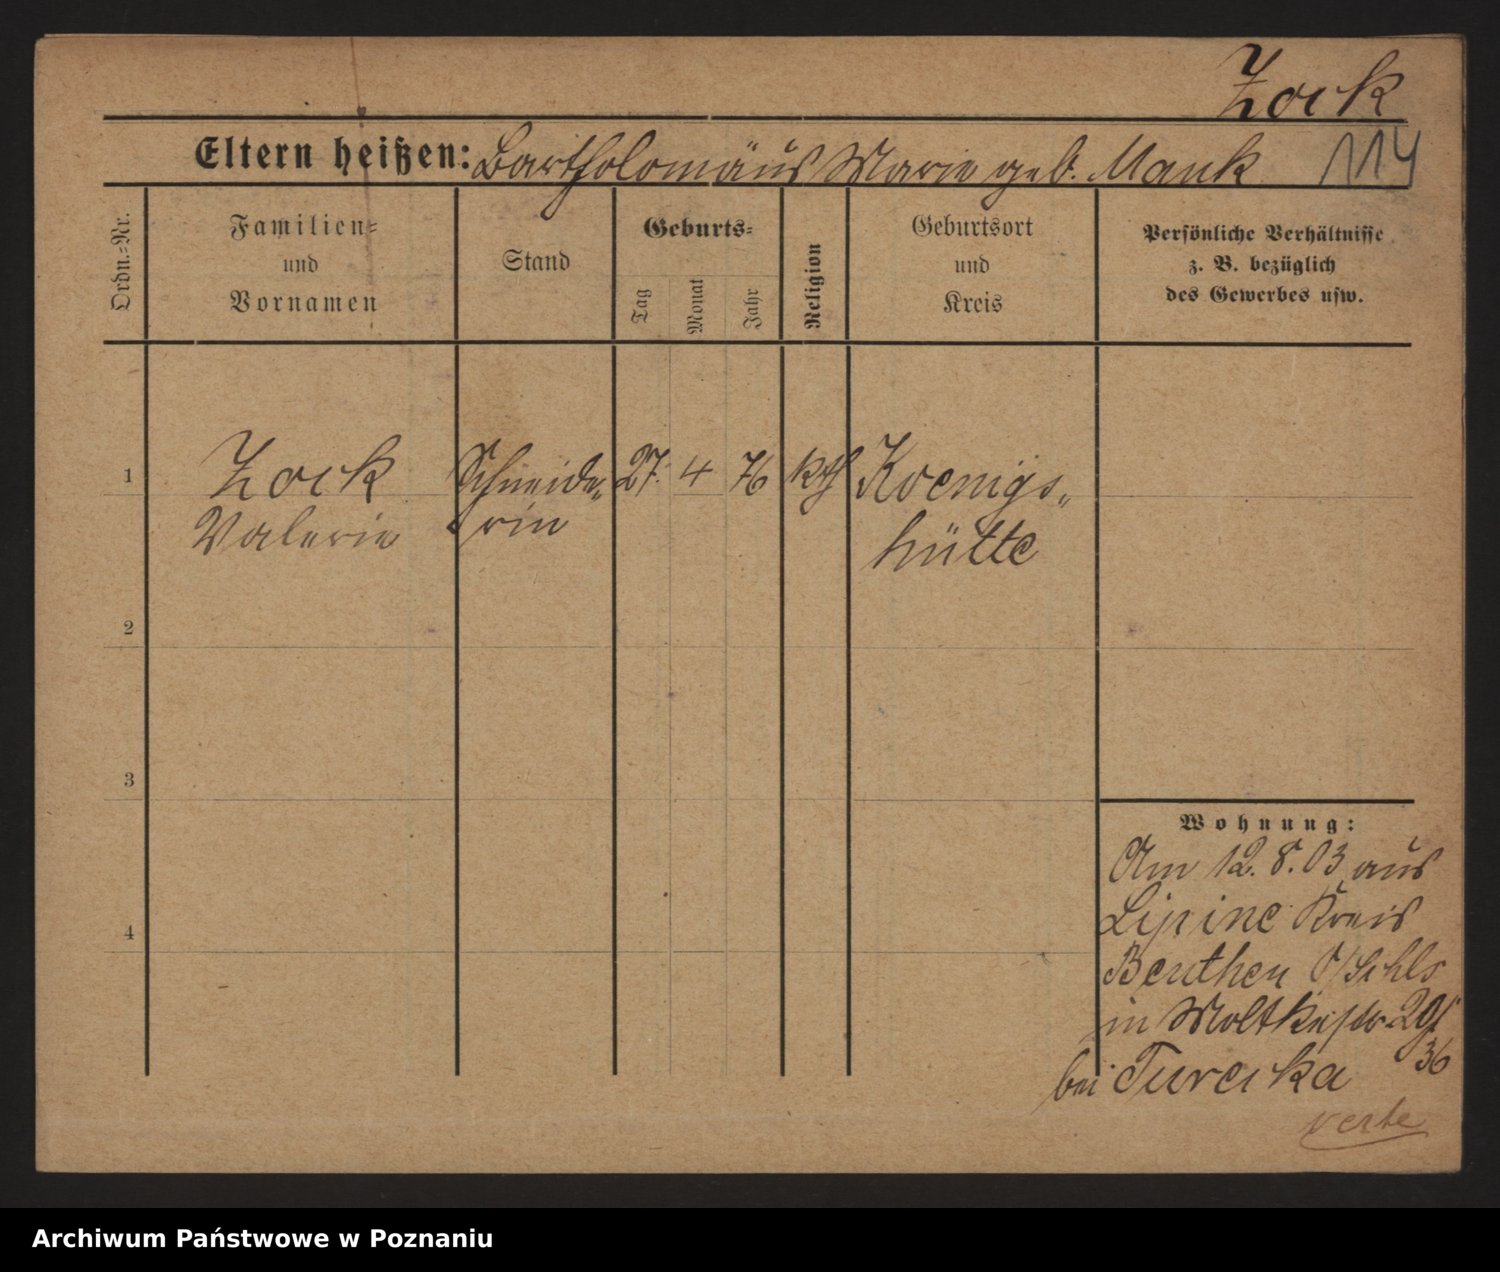 Zock
Eltern heißen: Bartholomäus Marie geb. Mank 114
Ordn.-Nr.
Familien-
und
Vornamen
Stand
Geburts-
Tag
Monat
Jahr
Religion
Geburtsort
und
Kreis
Persönliche Verhältnisse
z. B. bezüglich
des Gewerbes usw.
1
Zock
Valerie
Schneide-
rin
27. 4 76
kth
Koenigs-
hütte
2
3
4
Wohnung:
Am 12.8.03 aus
Lipine Kreis
Beuthen O/Schls
in Moltkestr
36
bei Turczka
verte
Archiwum Państwowe w Poznaniu